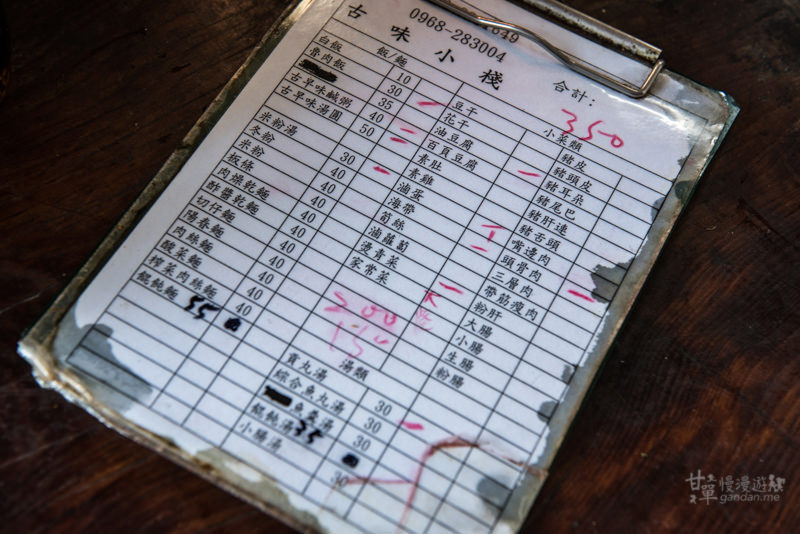 0968-283004
649
古味小棧
合計：
350
飯/麵
白飯 10
魯肉飯 30
35
古早味鹹粥 40
古早味湯圓 50
米粉湯 30
冬粉 40
米粉 40
板條 40
肉燥乾麵 40
酢醬乾麵 40
切仔麵 40
陽春麵 40
肉絲麵 40
酸菜麵 40
榨菜肉絲麵 40
餛飩麵 55
小菜類
豆干
花干
油豆腐
百頁豆腐
素肚
素雞
滷蛋
海帶
筍絲
滷蘿蔔
燙青菜
家常菜
豬皮
豬頭皮
豬耳朵
豬尾巴
豬肝連
豬舌頭
嘴邊肉
頭骨肉
三層肉
帶筋瘦肉
粉肝
大腸
小腸
生腸
粉腸
200
150
湯類
貢丸湯 30
綜合魚丸湯 30
魚羹湯 30
餛飩湯 35
小腸湯 30
甘單慢漫遊
gandan.me